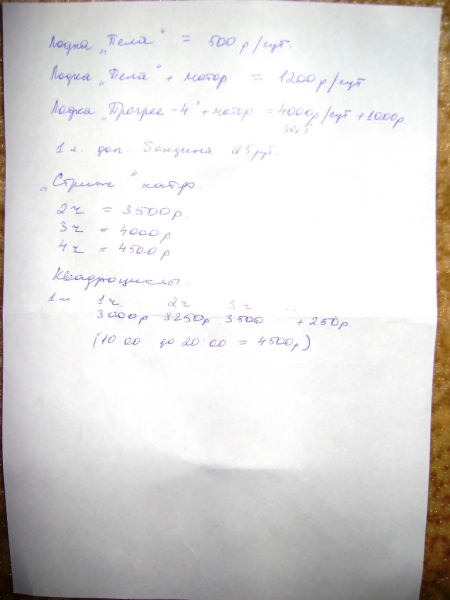 Лодка „Пела" = 500 р/сут.
Лодка „Пела" + мотор = 1200 р/сут
Лодка „Прогрес-4" + мотор = 4000р/сут + 1000р
1 л. доп. бензина 25 руб.
„Стриж" катер.
2 ч = 3500 р.
3 ч = 4000р
4 ч = 4500р
Квадроциклы.
1 ч. 2ч 3ч ..
3000р 3250р 3500 +250р.
(10 00 до 20:00 = 4500р)